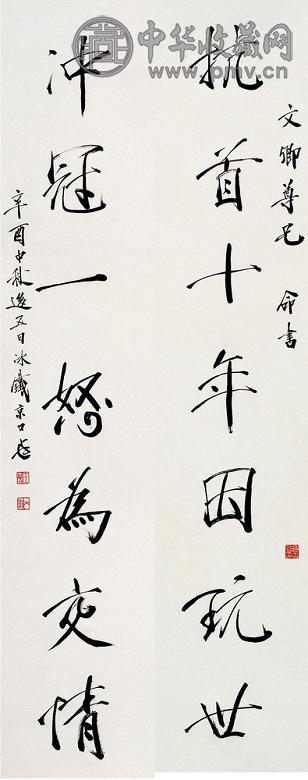 中华收藏网
www.pmv.cn
文卿尊兄 命書
抗首十年因玩世
冲冠一怒為交情
辛酉中秋後五日冰鐵京口